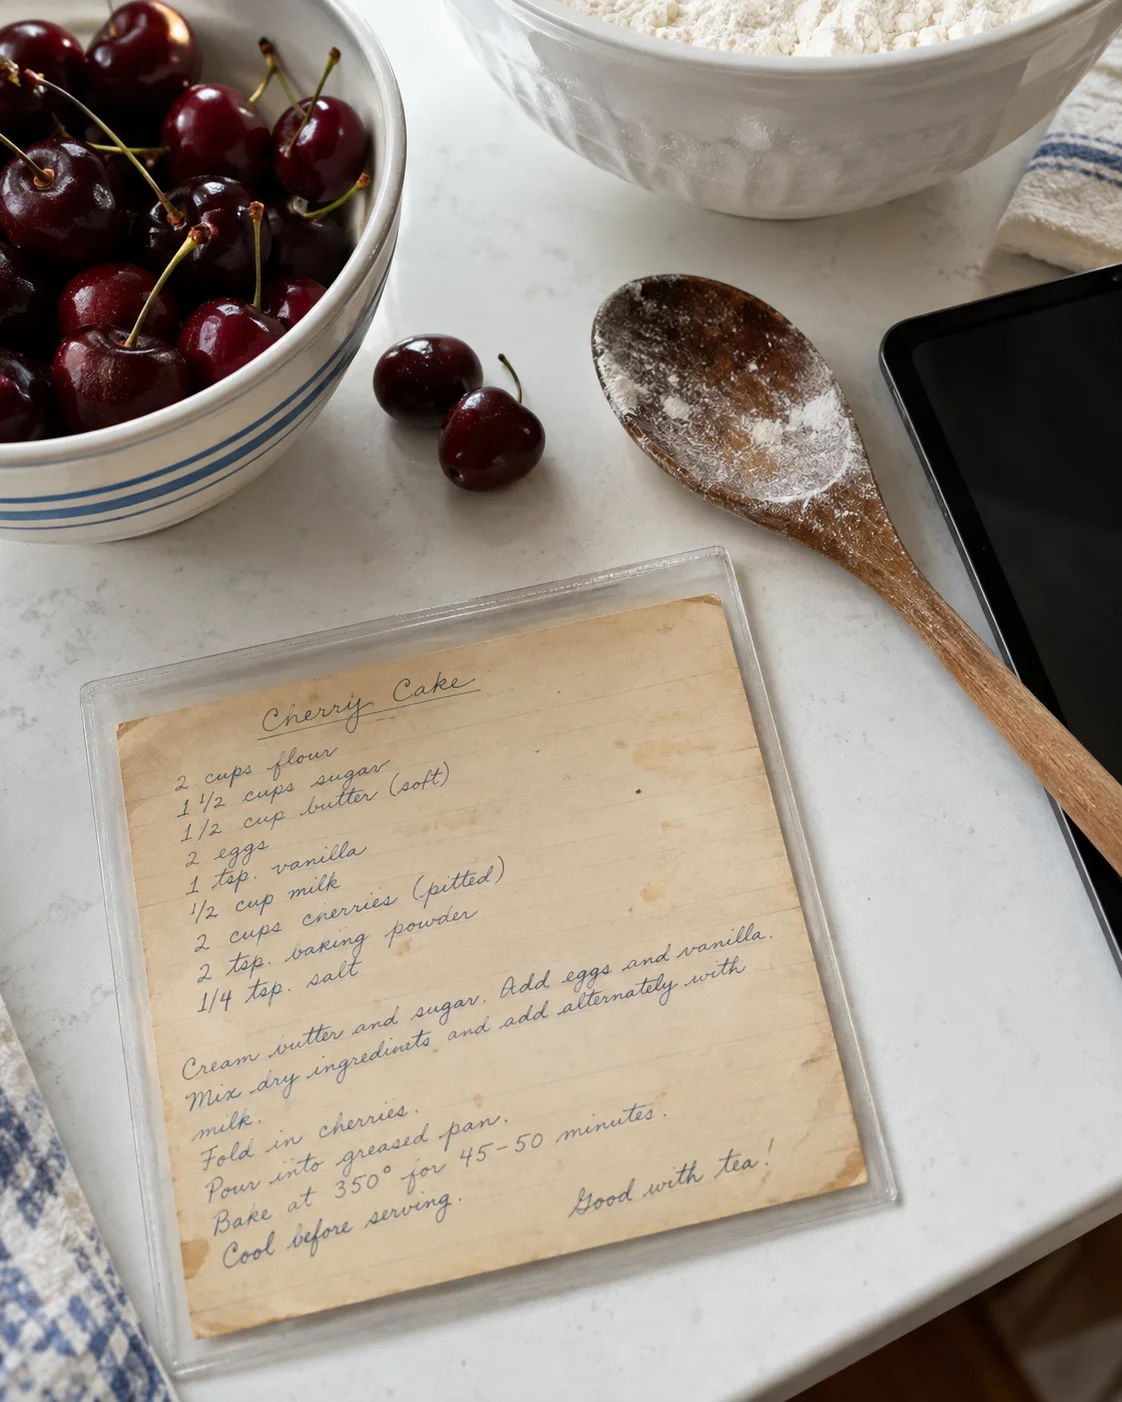 Cherry Cake
2 cups flour
1 1/2 cups sugar
1/2 cup butter (soft)
2 eggs
1 tsp. vanilla
1/2 cup milk
2 cups cherries (pitted)
2 tsp. baking powder
1/4 tsp. salt
Cream butter and sugar. Add eggs and vanilla.
Mix dry ingredinets and add alternately with
milk.
Fold in cherries.
Pour into greased pan.
Bake at 350° for 45-50 minutes.
Cool before serving.
Good with tea!